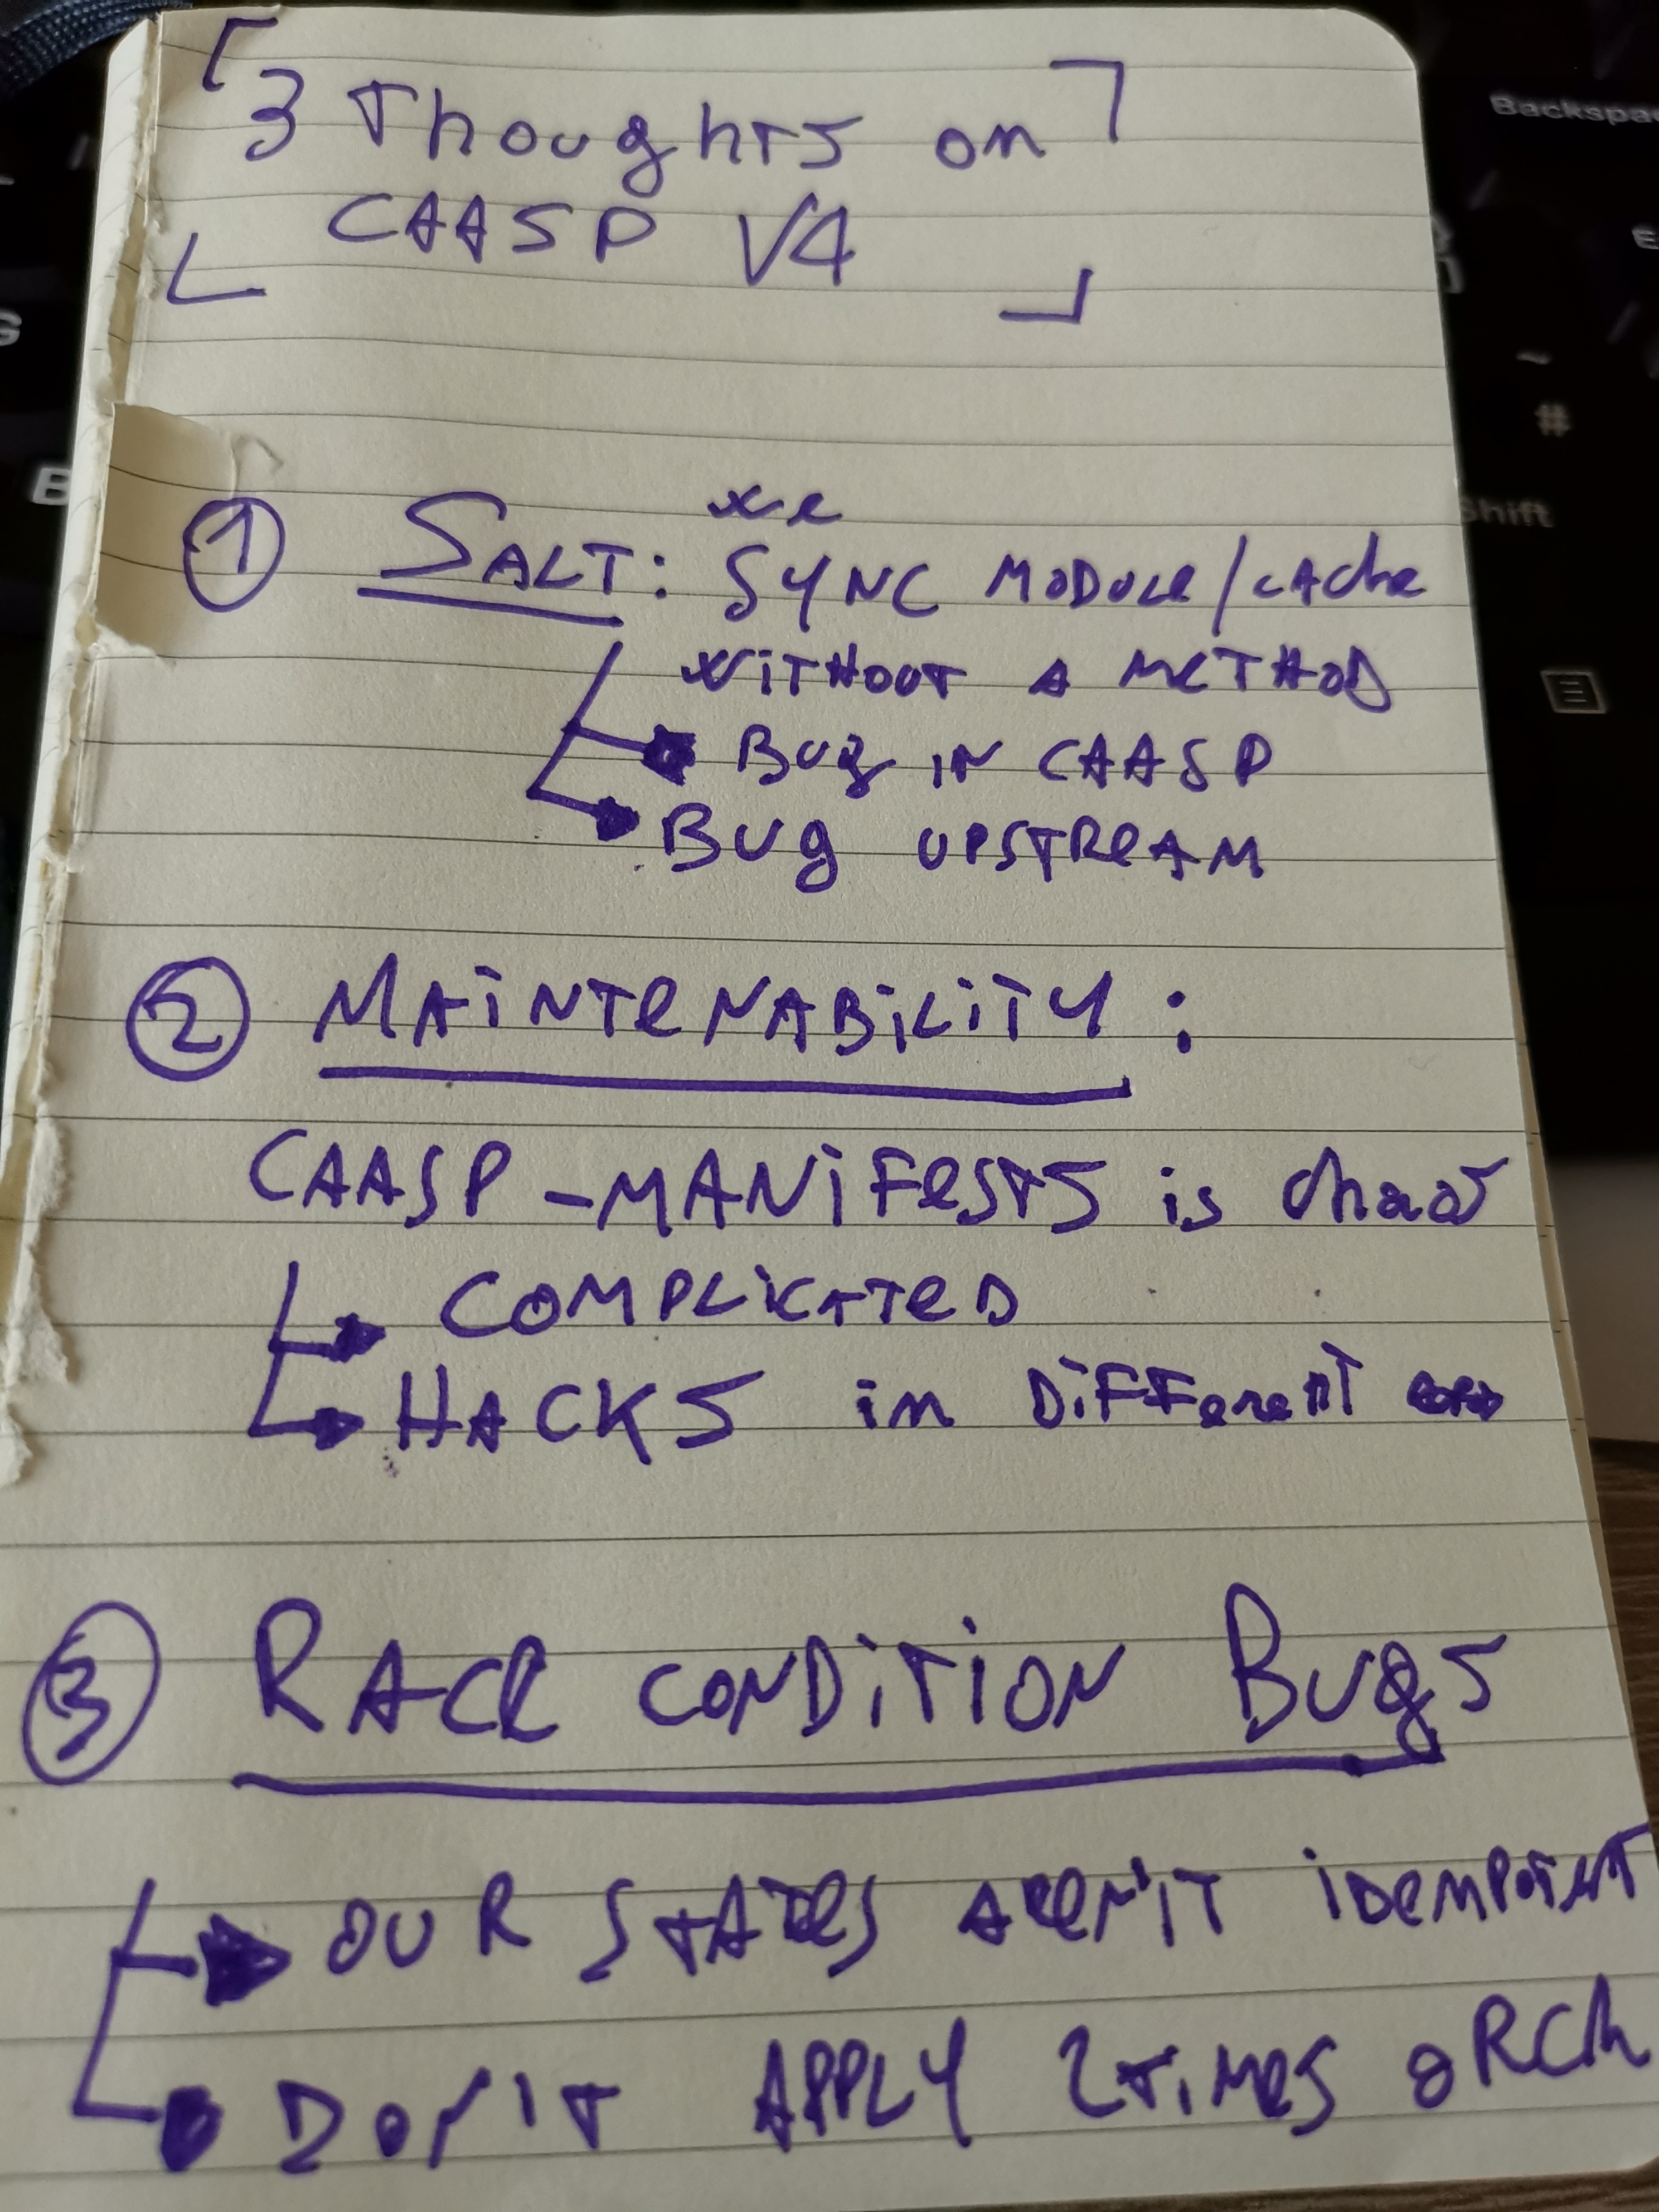 3 Thoughts on
CAASP V4
1 SALT: we SYNC MODULE/cAche
WITHOUT A METHOD
BUg IN CAASP
BUg UPSTREAM
2 MAiNTeNABiLiTY:
CAASP-MANiFeSTS is chaos
COMPLiCATeD
HACKS in DiFFerenT
3 RACe CONDiTiON BUgS
OUR STATeS AReN'T iDeMPOTeNT
DON'T APPLY 2 TiMeS ORCh
Backspa
Shift
~
#